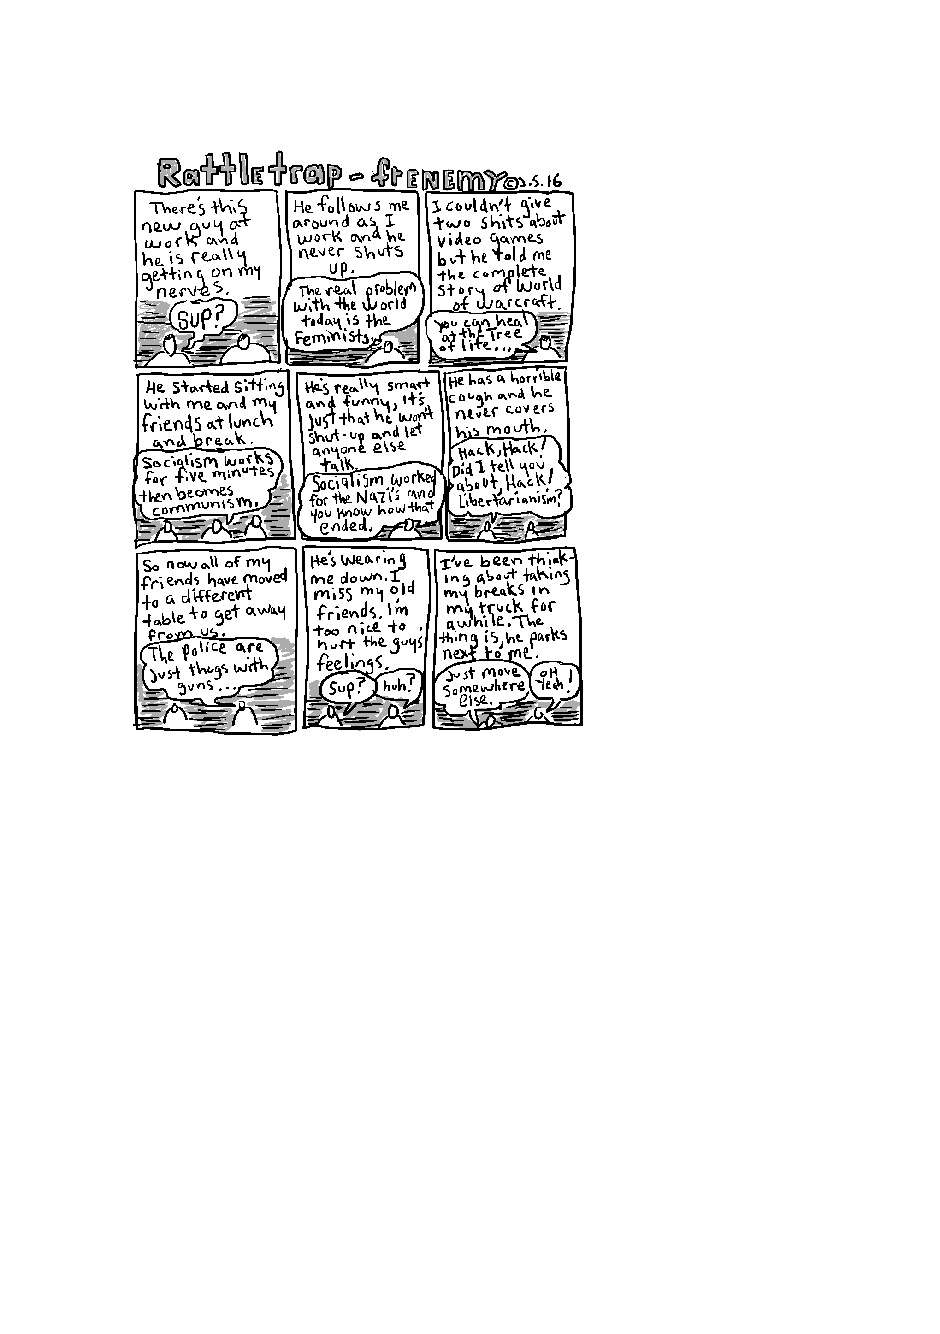 Rattletrap - FRENEMY 2.5.16
There's this
new guy at
work and
he is really
getting on my
nerves.
Sup?
He follows me
around as I
work and he
never shuts
up.
The real problem
with the world
today is the
Feminists..
I couldn't give
two shits about
video games
but he told me
the complete
story of World
of warcraft.
you can heal
at the Tree
of life....
He started sitting
with me and my
friends at lunch
and break.
Socialism works
for five minutes
then becomes
communism.
He's really smart
and funny, it's
just that he won't
shut-up and let
anyone else
talk.
Socialism worked
for the Nazi's and
you know how that
ended.
He has a horrible
cough and he
never covers
his mouth.
Hack, Hack!
Did I tell you
about, Hack!
Libertarianism?
So now all of my
friends have moved
to a different
table to get away
from us.
The Police are
just thugs with
guns...
He's wearing
me down. I
miss my old
friends. I'm
too nice to
hurt the guys
feelings.
Sup?
huh?
I've been think-
ing about taking
my breaks in
my truck for
awhile. The
thing is, he parks
next to me.
Just move
somewhere
else.
oH
Yeah!